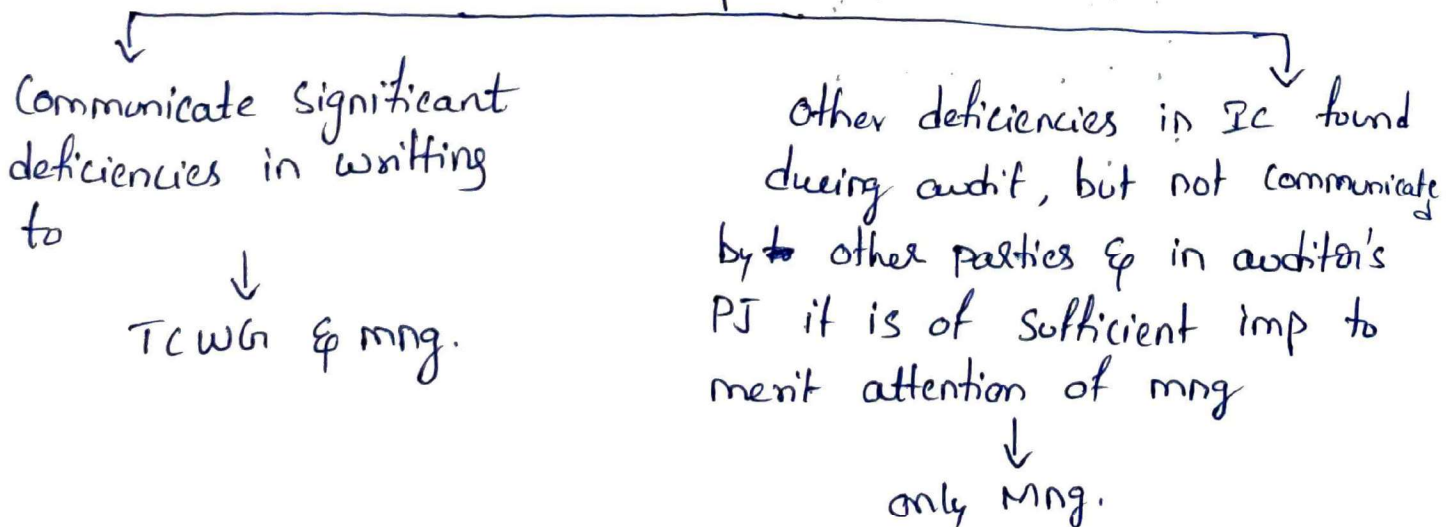 Communicate significant
deficiencies in writting
to
TCWG & mng.
Other deficiencies in IC found
during audit, but not communicated
by to other parties & in auditor's
PJ it is of sufficient imp to
merit attention of mng
only Mng.